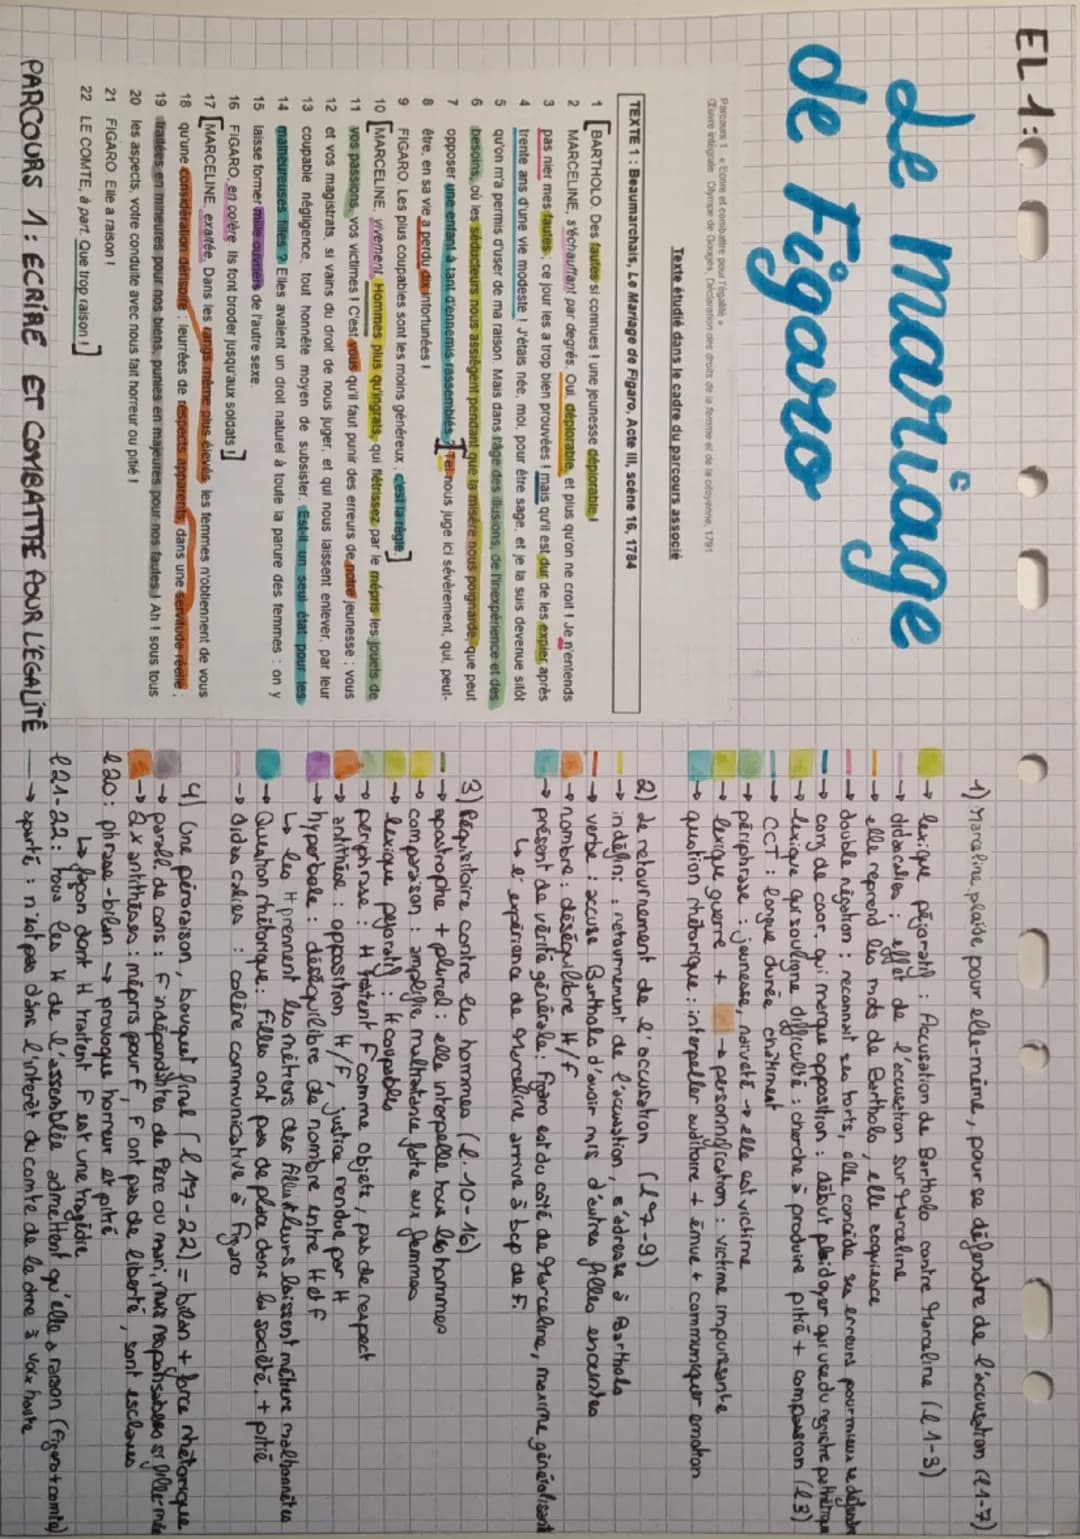 EL 1:
Le Mariage
de Figaro
Parcours 1 : « Ecrire et combattre pour l'égalité »
Œuvre intégrale : Olympe de Gouges, Déclaration des droits de la femme et de la citoyenne, 1791
Texte étudié dans le cadre du parcours associé
TEXTE 1 : Beaumarchais, Le Mariage de Figaro, Acte III, scène 16, 1784
1 [BARTHOLO. Des fautes si connues ! une jeunesse déplorable !
2 MARCELINE, s'échauffant par degrés. Oui, déplorable, et plus qu'on ne croit ! Je n'entends
3 pas nier mes fautes ; ce jour les a trop bien prouvées ! mais qu'il est dur de les expier après
4 trente ans d'une vie modeste ! J'étais née, moi, pour être sage, et je la suis devenue sitôt
5 qu'on m'a permis d'user de ma raison. Mais dans l'âge des illusions, de l'inexpérience et des
6 besoins, où les séducteurs nous assiègent pendant que la misère nous poignarde, que peut
7 opposer une enfant à tant d'ennemis rassemblés ?] Tel nous juge ici sévèrement, qui, peut-
8 être, en sa vie a perdu dix infortunées !
9 FIGARO. Les plus coupables sont les moins généreux ; c'est la règle.]
10 [MARCELINE, vivement. Hommes plus qu'ingrats, qui flétrissez par le mépris les jouets de
11 vos passions, vos victimes ! C'est vous qu'il faut punir des erreurs de notre jeunesse ; vous
12 et vos magistrats, si vains du droit de nous juger, et qui nous laissent enlever, par leur
13 coupable négligence, tout honnête moyen de subsister. Est-il un seul état pour les
14 malheureuses filles ? Elles avaient un droit naturel à toute la parure des femmes : on y
15 laisse former mille ouvriers de l'autre sexe.
16 FIGARO, en colère. Ils font broder jusqu'aux soldats !]
17 [MARCELINE, exaltée. Dans les rangs même plus élevés, les femmes n'obtiennent de vous
18 qu'une considération dérisoire ; leurrées de respects apparents, dans une servitude réelle ;
19 traitées en mineures pour nos biens, punies en majeures pour nos fautes ! Ah ! sous tous
20 les aspects, votre conduite avec nous fait horreur ou pitié !
21 FIGARO. Elle a raison !
22 LE COMTE, à part. Que trop raison !]
PARCOURS 1 : ECRIRE ET COMBATTRE POUR L'EGALITÉ
1) Marceline plaide, pour elle-même, pour se défendre de l'accusation (l 1-7)
→ lexique péjoratif : Accusation de Bartholo contre Marceline (l 1-3)
→ didascalies : effet de l'accusation sur Marceline
→ elle reprend les mots de Bartholo, elle acquiesce
→ double négation : reconnait ses torts, elle concède ses erreurs pour mieux se défendre
→ conj de coor. qui marque opposition : début plaidoyer qui use du registre pathétique
→ lexique qui souligne difficulté : cherche à produire pitié + compassion (l3)
→ CCT : longue durée châtiment
→ périphrase : jeunesse, naïveté → elle est victime
→ lexique guerre + → personnification : victime impuissante
→ question rhétorique : interpeller auditoire + émue + communiquer emotion
2) Le retournement de l'accusation (l 7-9)
→ indéfini : retournement de l'accusation, s'adresse à Bartholo
→ verbe : accuse Bartholo d'avoir mis d'autres filles enceintes
→ nombre : déséquilibre H/F
→ présent de vérité générale : Figaro est du côté de Marceline, maxime généralisant
↳ l'expérience de Marceline arrive à bcp de F.
3) Réquisitoire contre les hommes (l. 10-16)
→ apostrophe + pluriel : elle interpelle tous les hommes
→ comparaison : amplifie maltraitance faite aux femmes
→ lexique pejoratif : H coupables
→ périphrase : H traitent F comme objets, pas de respect
→ antithèse : opposition H/F, justice rendue par H
→ hyperbole : déséquilibre de nombre entre H et F
↳ les H prennent les métiers des filles + leurs laissent métiers malhonnêtes
→ Question rhétorique : Filles ont peu de place dans la société. + pitié
→ didascalies : colère communicative à Figaro
4) Une péroraison, bouquet final (l 17-22) = bilan + force rhétorique
→ parall. de cons : F indépendantes de Père ou mari, mais responsables si fille-mère
→ 2x antithèses : mépris pour F, F ont pas de liberté, sont esclaves
l20 : phrase-bilan → provoque horreur et pitié
↳ façon dont H traitent F est une tragédie
l21-22 : tous les H de l'assemblée admettent qu'elle a raison (Figaro + comte)
→ aparté : n'est pas dans l'intérêt du comte de le dire à voix haute